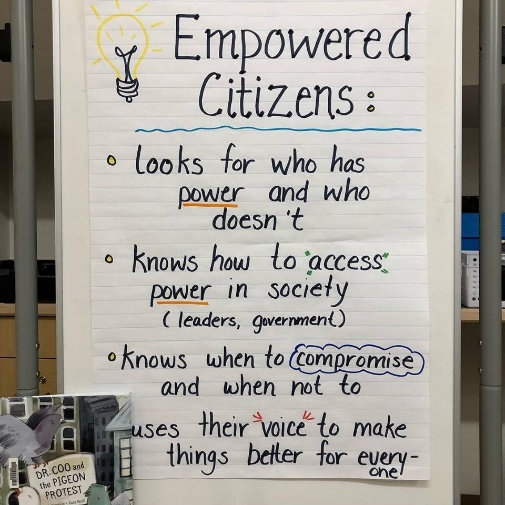 Empowered
Citizens:
looks for who has
power and who
doesn't
knows how to access
power in society
(leaders, government)
knows when to compromise
and when not to
uses their "voice" to make
things better for every-
one
DR. COO and
the PIGEON
PROTEST